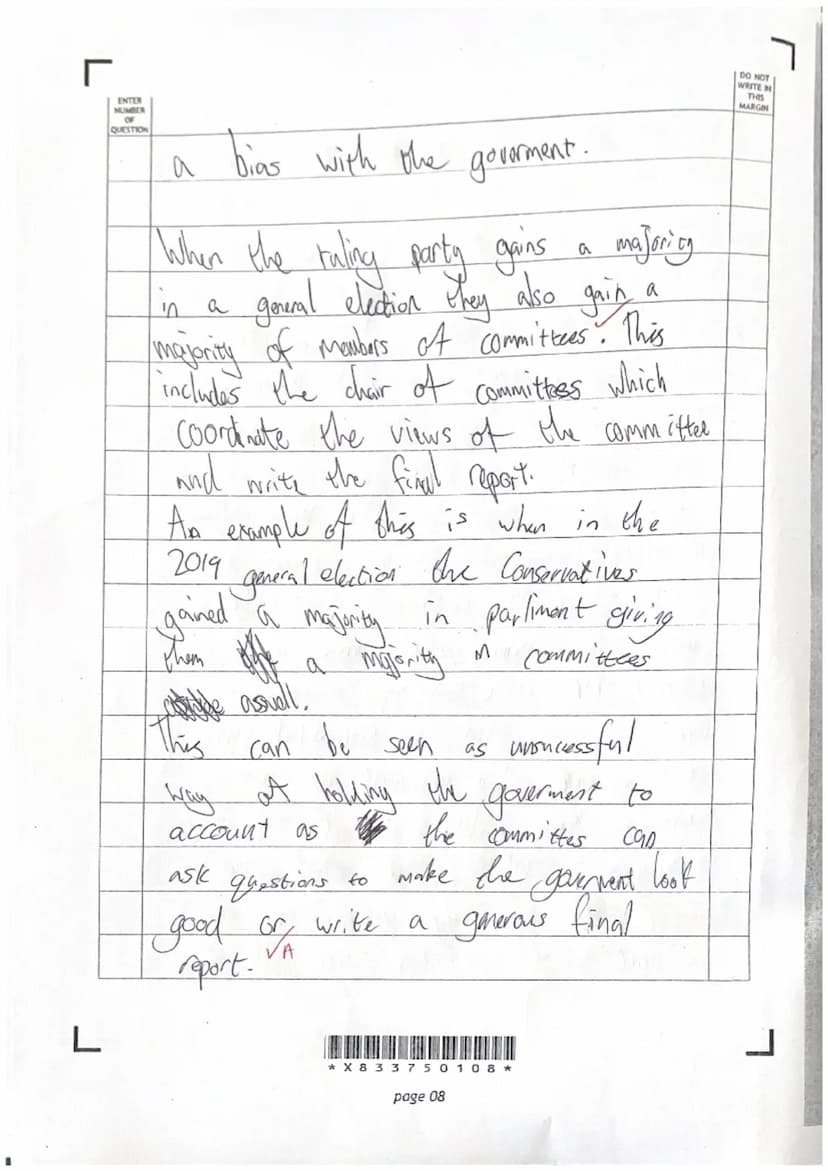 ENTER
NUMBER
OF
QUESTION
DO NOT
WRITE IN
THIS
MARGIN
a bias with the goverment.
When the ruling party gains a majority
in a general election they also gain a
majority of members of committees. This
includes the chair of committess which
coordinate the views of the committee
and write the final report.
An example of this is when in the
2019 general election the Conservatives
gained a majority in parliment giving
them a majority in committees
aswell.
This can be seen as unsuncessful
way of holding the goverment to
account as the committes can
ask questions to make the goverment look
good or write a generous final
report. ✓A
*X833750108*
page 08